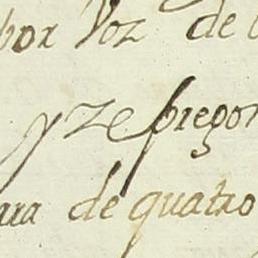 por Voz de
y ze pregon
ara de quatro